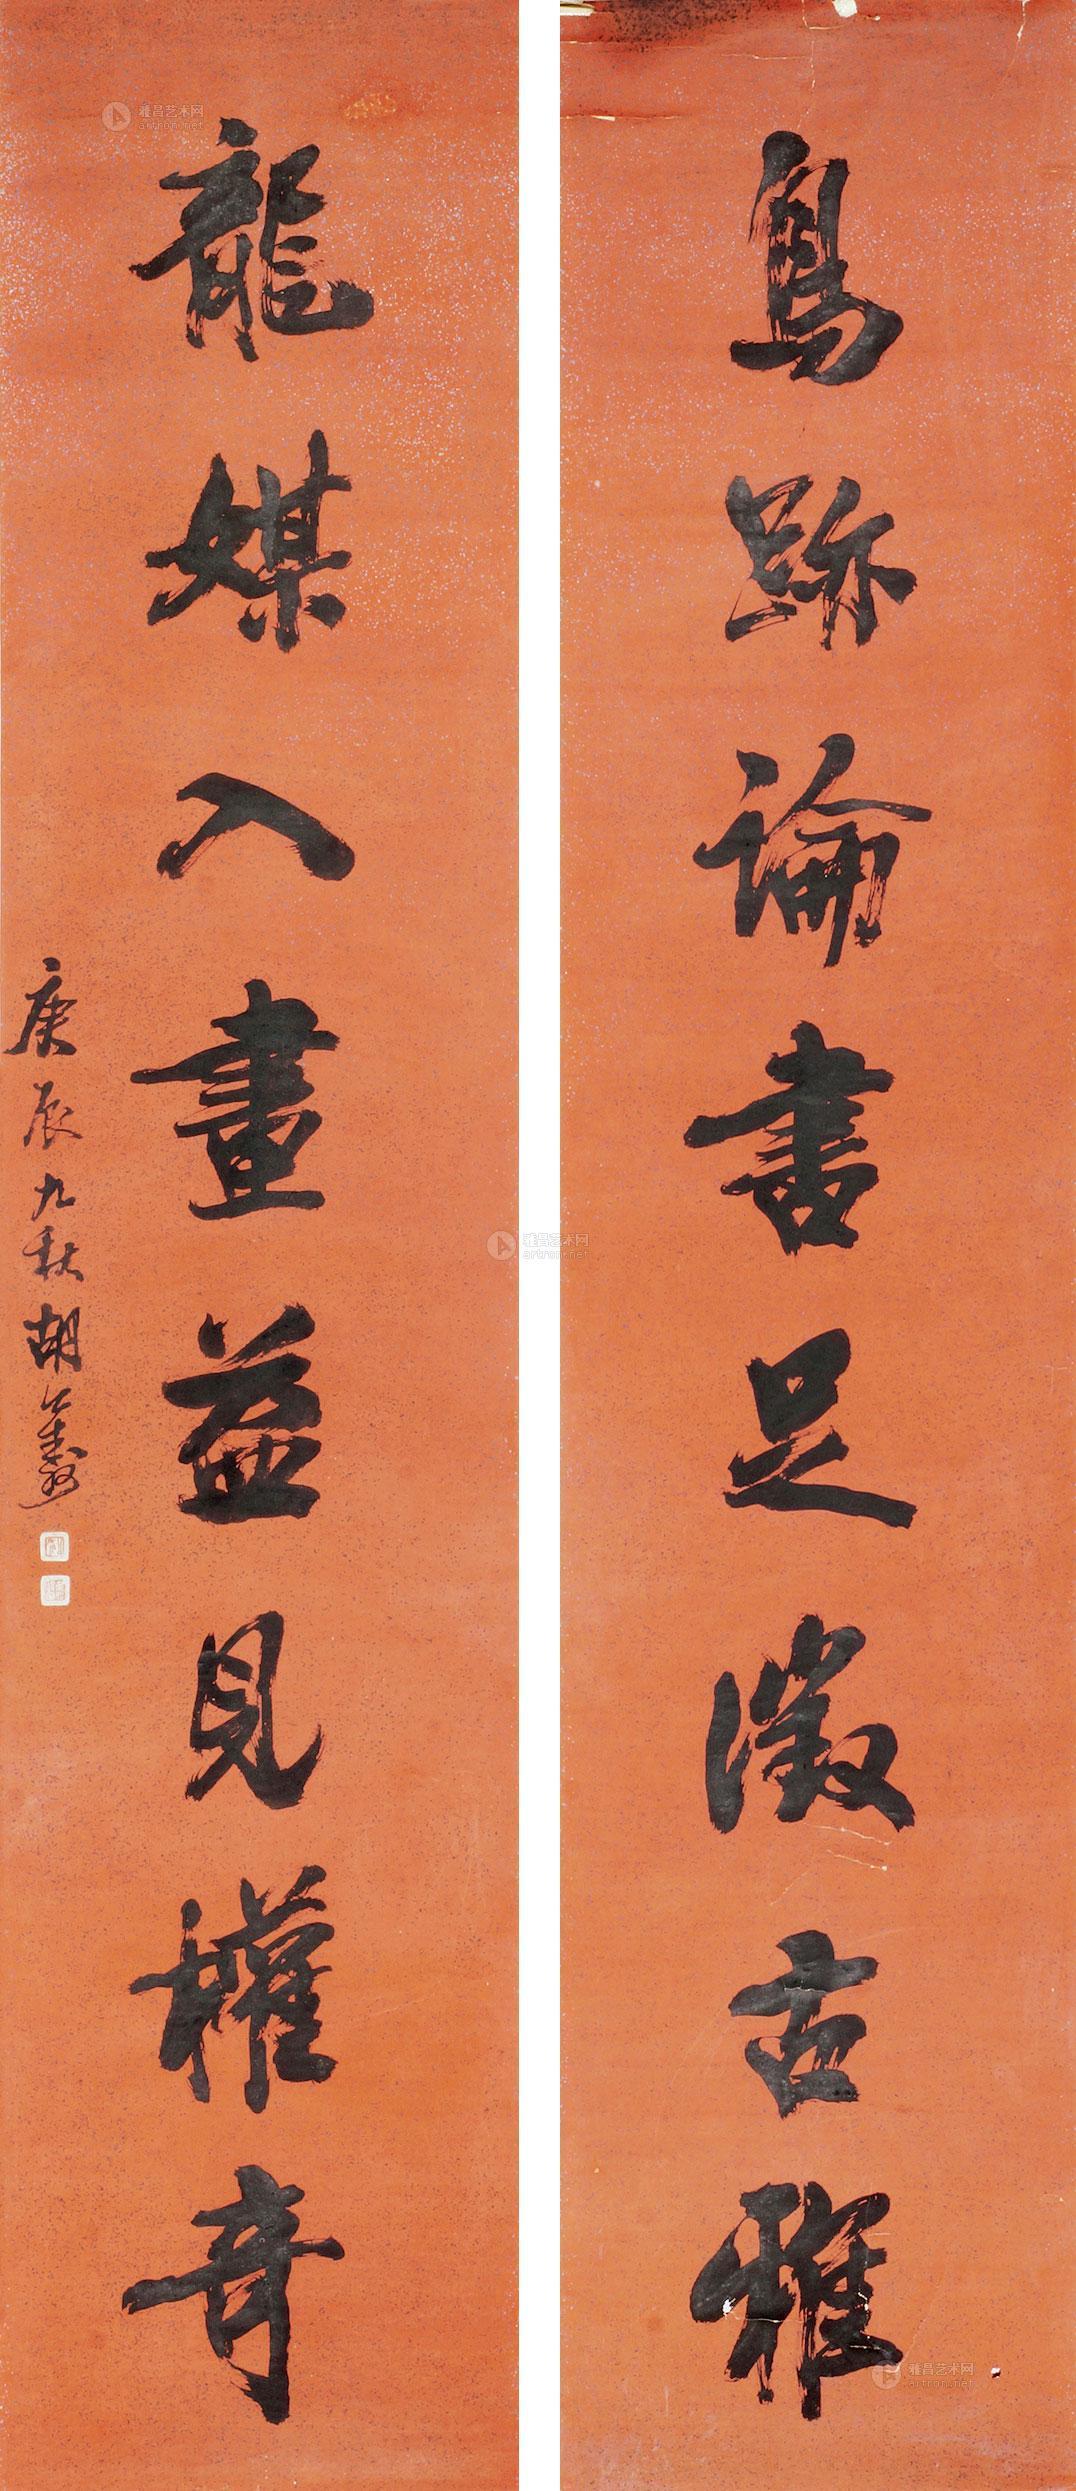 鳥跡論書足徵古雅
龍媒入畫益見權奇
庚辰九秋胡公壽
雅昌艺术网
artron.net
雅昌艺术网
artron.net
雅昌艺术网
artron.net